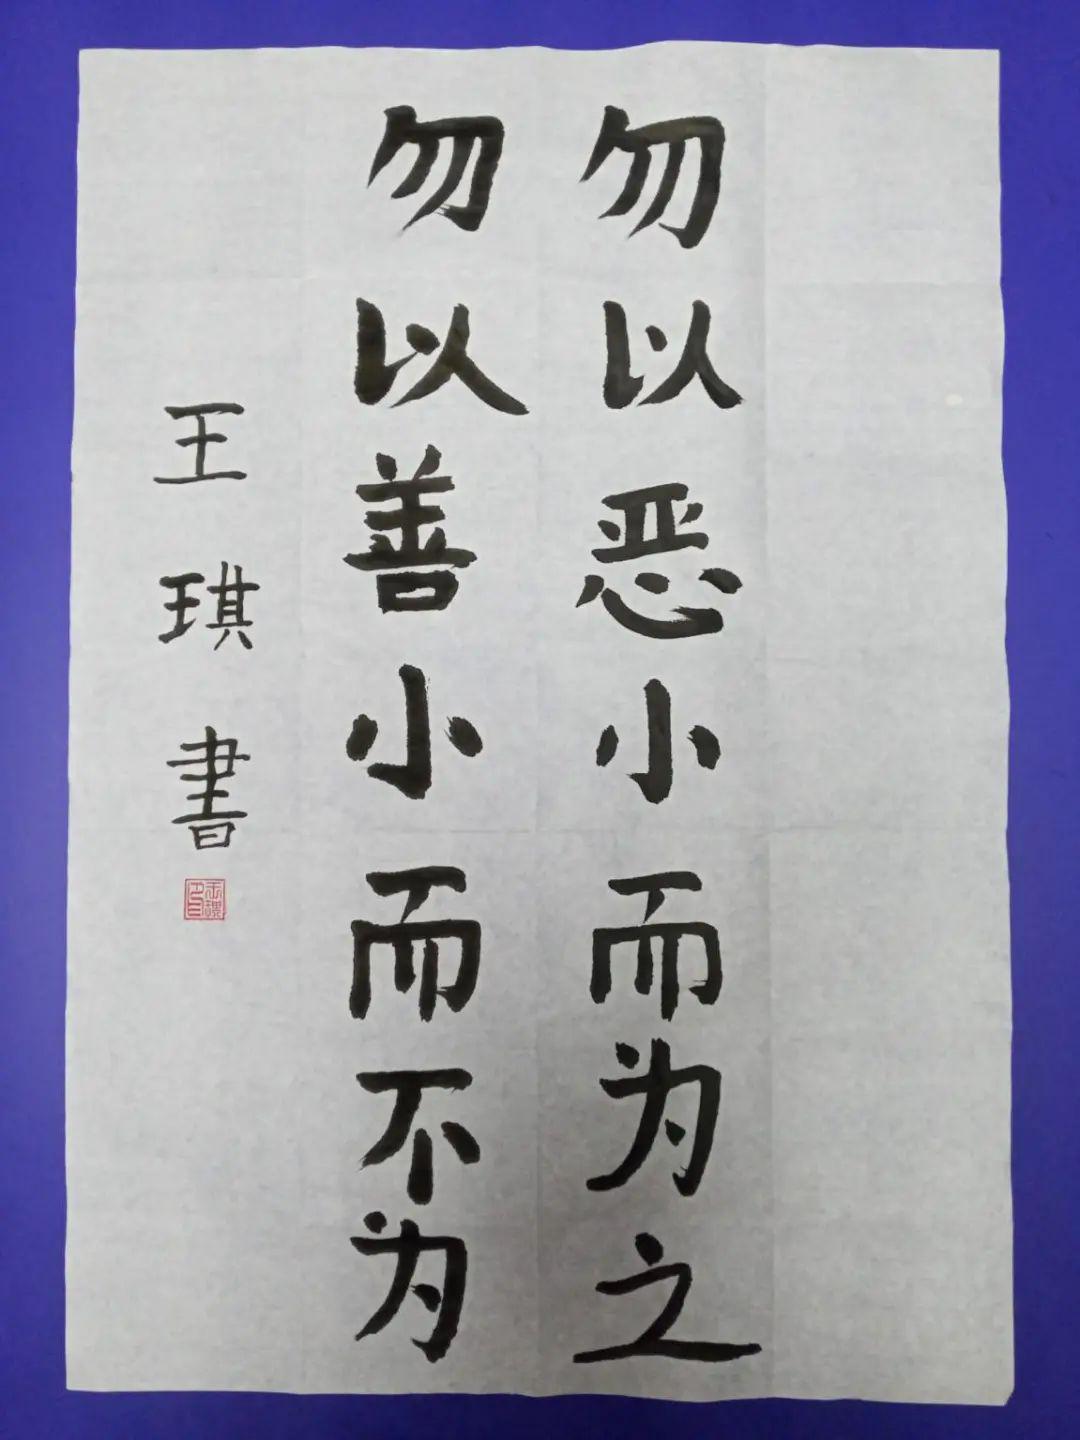 勿以恶小而为之
勿以善小而不为
王琪書